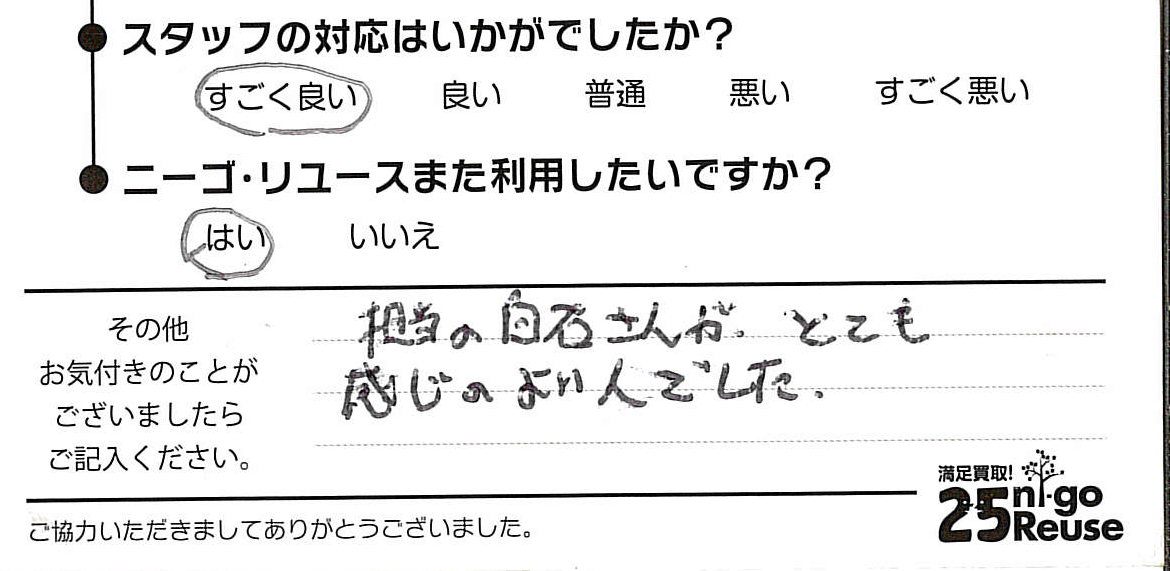 スタッフの対応はいかがでしたか？
すごく良い 良い 普通 悪い すごく悪い
ニーゴ・リユースまた利用したいですか？
はい いいえ
その他
お気付きのことが
ございましたら
ご記入ください。
担当の白石さんが、とても
感じのよい人でした。
ご協力いただきましてありがとうございました。
満足買取!
25 ni-go
Reuse